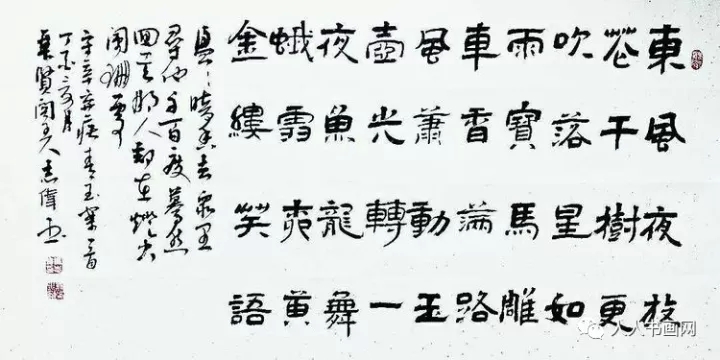 東風夜放
花千樹更
吹落星如
雨寶馬雕
車香滿路
風蕭動玉
壺光轉一
夜魚龍舞
蛾雪黄
金縷笑語
盈〻暗香去衆里
尋他千百度驀然
回首那人卻在燈火
闌珊處
辛弃疾青玉案一首
丁月
賢閣志偉
人人书画网